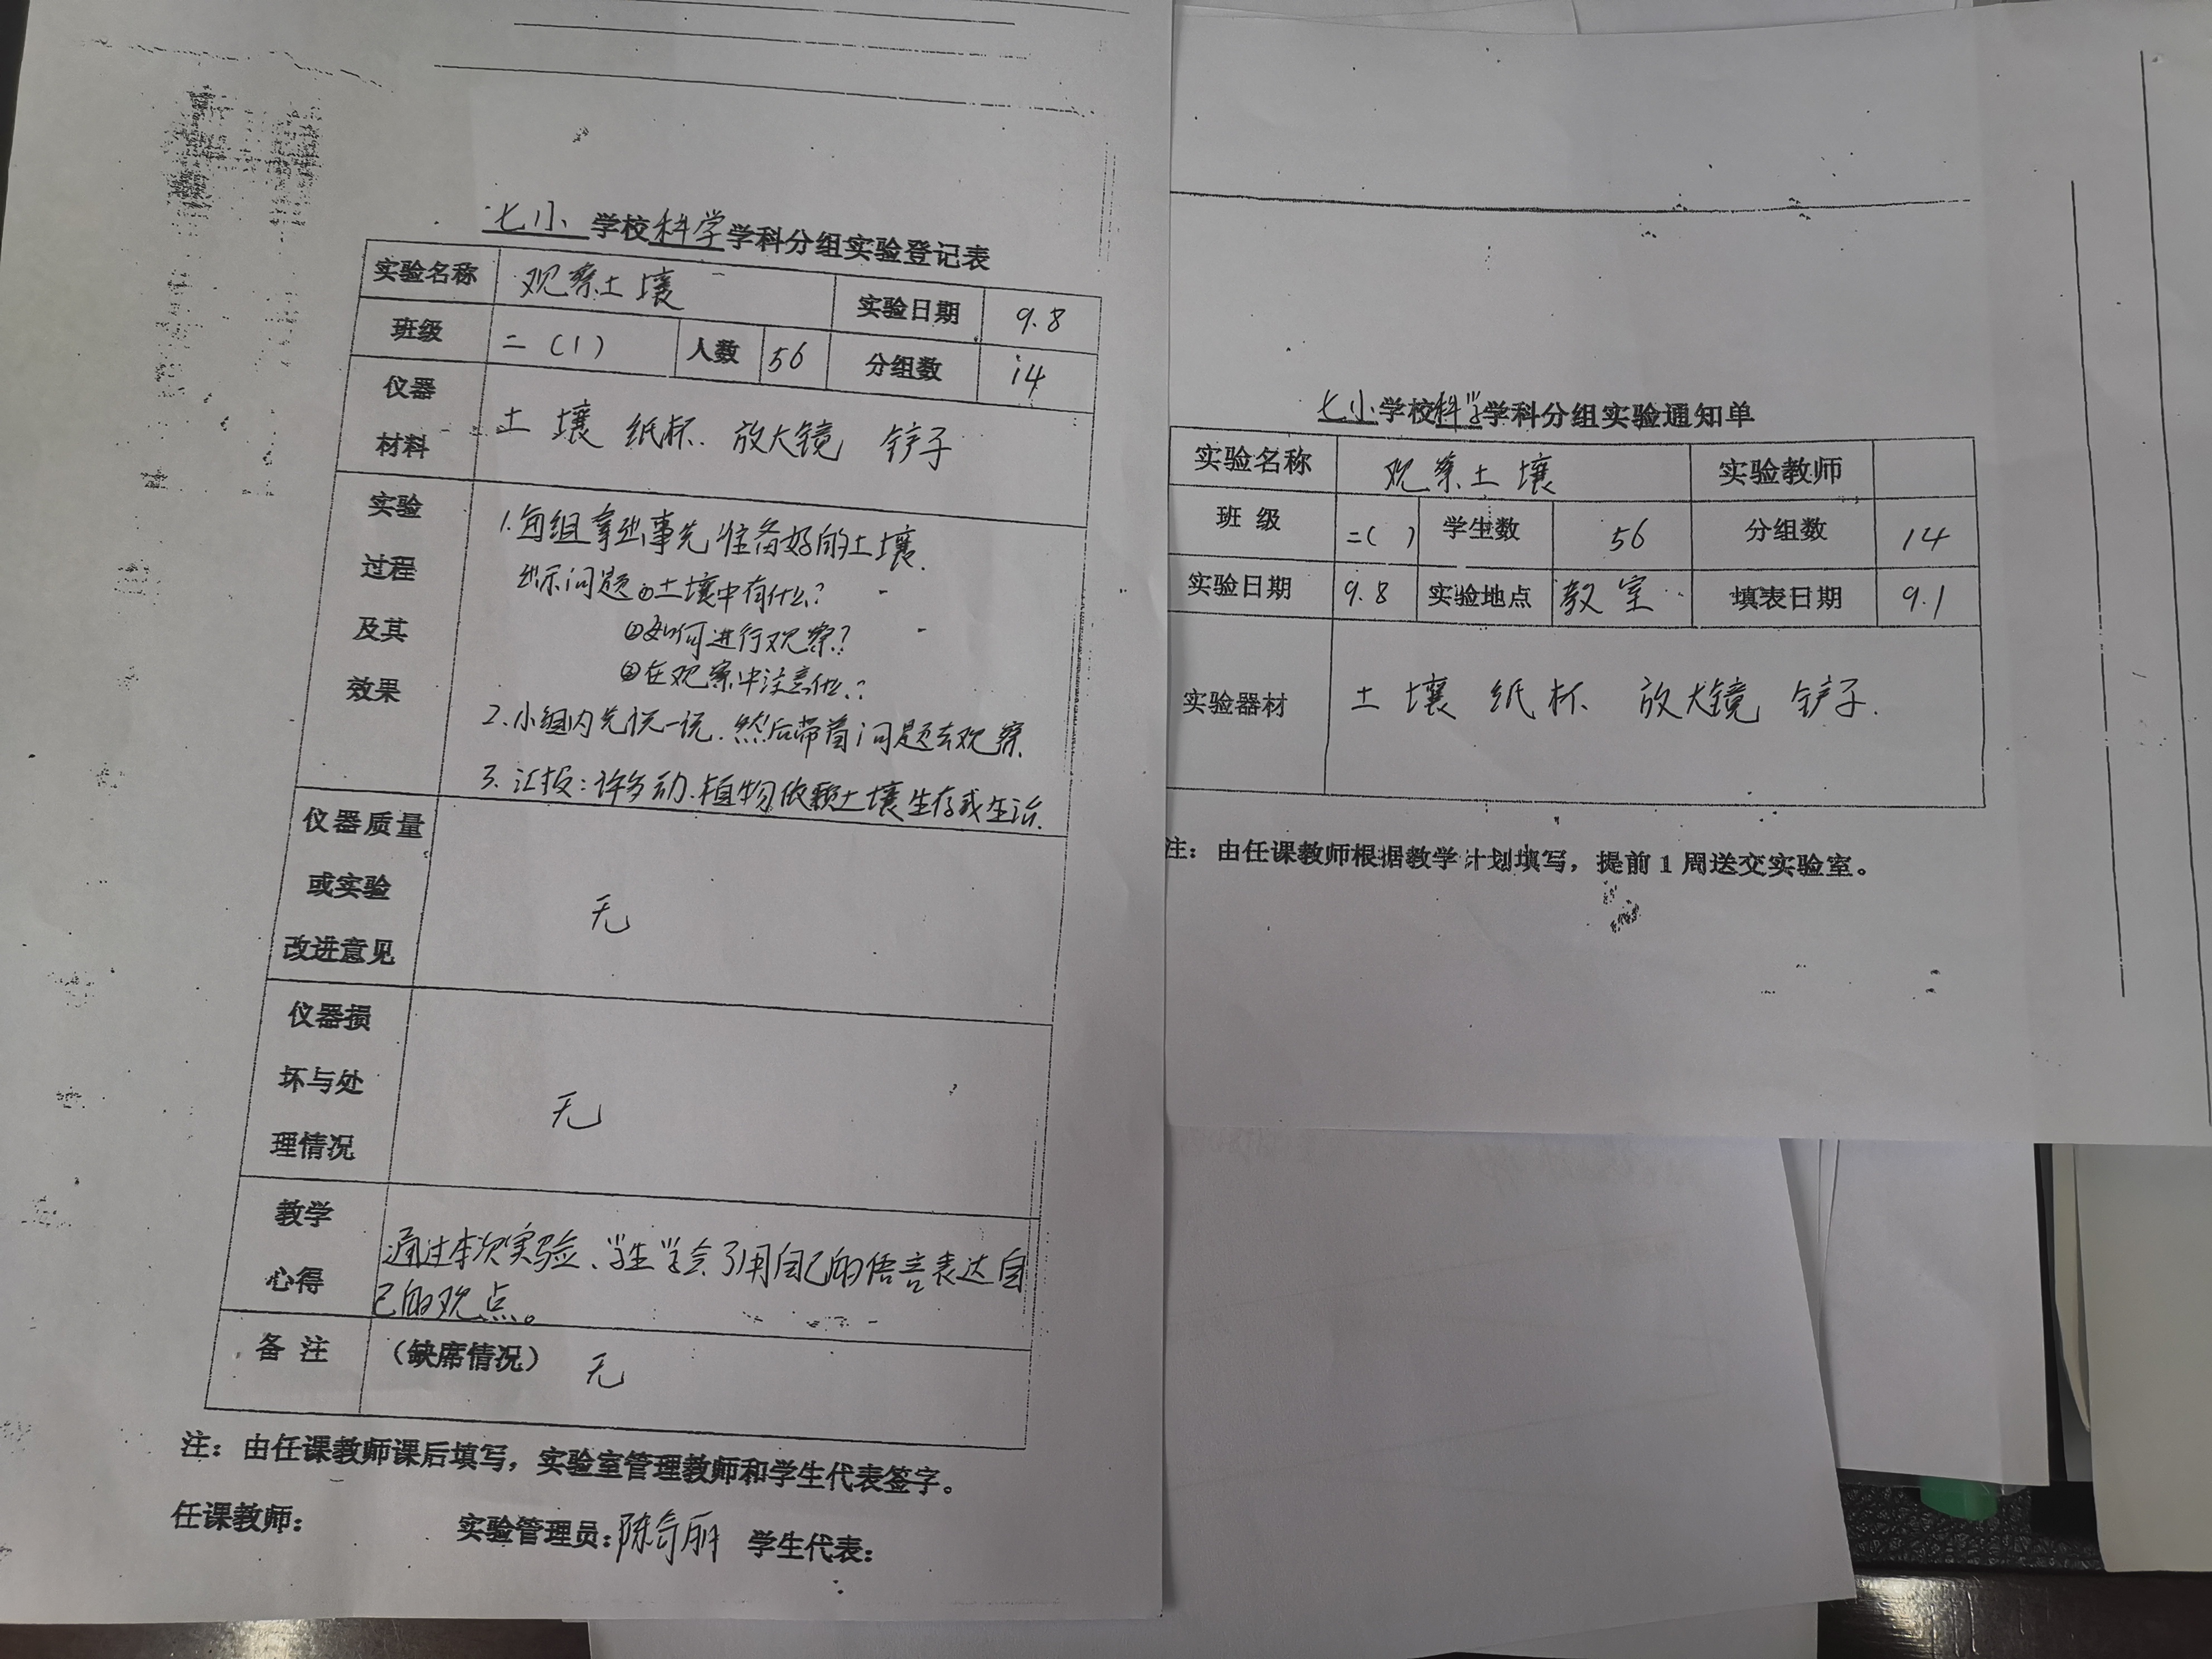 七小学校科学学科分组实验登记表
实验名称 观察土壤 实验日期 9.8
班级 二(1) 人数 56 分组数 14
仪器
材料
土壤 纸杯. 放大镜 铲子
实验
过程
及其
效果
1.每组拿出事先准备好的土壤.
出示问题①土壤中有什么?
②如何进行观察?
③在观察中注意什么?
2.小组内先说一说.然后带着问题去观察.
3.汇报:许多动.植物依赖土壤生存或生活.
仪器质量
或实验
改进意见
无
仪器损
坏与处
理情况
无
教学
心得
通过本次实验、学生学会了用自己的语言表达自
己的观点。
备注 (缺席情况) 无
注：由任课教师课后填写，实验室管理教师和学生代表签字。
任课教师： 实验管理员：陈奇丽 学生代表：
七小学校科学学科分组实验通知单
实验名称 观察土壤 实验教师
班级 二( ) 学生数 56 分组数 14
实验日期 9.8 实验地点 教室 填表日期 9.1
实验器材 土壤 纸杯 放大镜 铲子.
注：由任课教师根据教学计划填写，提前1周送交实验室。